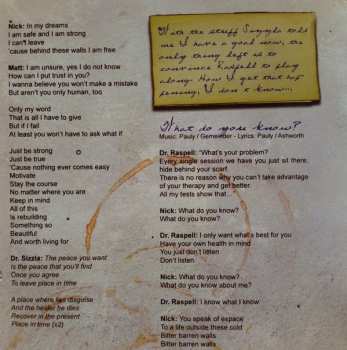 Nick: In my dreams
I am safe and I am strong
I can't leave
'cause behind these walls I am free
Matt: I am unsure, yes I do not know
How can I put trust in you?
I wanna believe you won't make a mistake
But aren't you only human, too
Only my word
That is all I have to give
But if I fail
At least you won't have to ask what if
Just be strong
Just be true
'Cause nothing ever comes easy
Motivate
Stay the course
No matter where you are
Keep in mind
All of this
Is rebuilding
Something so
Beautiful
And worth living for
Dr. Sizzla: The peace you want
Is the peace that you'll find
Once you agree
To leave place in time
A place where lies disguise
And the healer be dies
Recover in the present
Place in time (x2)
With the stuff Suzzla told
me I have a good new, the
only thing left is to
convince Raspell to play
along. How I get that hef
penning, I don't know...
What do you know?
Music: Pauly / Gemeinder - Lyrics: Pauly / Ashworth
Dr. Raspell: "What's your problem?
Every single session we have you just sit there,
hide behind your scarf
There is no reason why you can't take advantage
of your therapy and get better.
All my tests show that...
Nick: What do you know?
What do you know?
Dr. Raspell: I only want what's best for you
Have your own health in mind
You just don't listen
Don't listen
Nick: What do you know?
What do you know about me?
Dr. Raspell: I know what I know
Nick: You speak of espace
To a life outside these cold
Bitter barren walls
Bitter barren walls